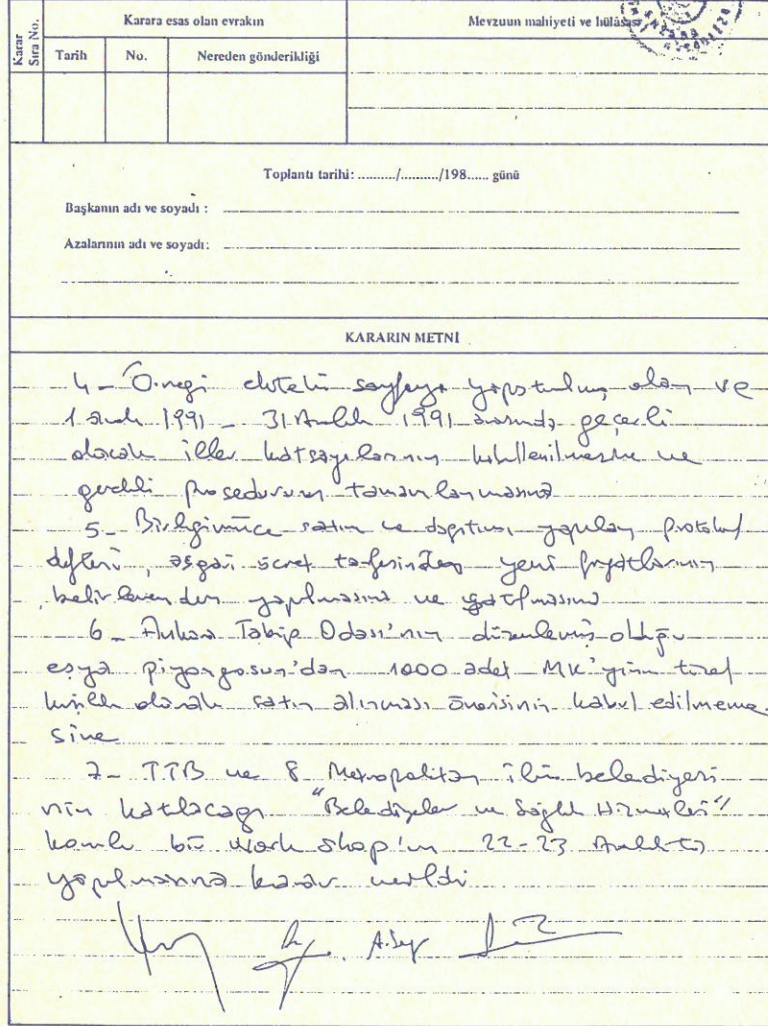 Karar Sıra No.
Karara esas olan evrakın
Mevzuun mahiyeti ve hülâsası
Tarih No. Nereden gönderikliği
Toplantı tarihi: ........./........../198...... günü
Başkanın adı ve soyadı :
Azalarının adı ve soyadı:
KARARIN METNİ
4- Örneği ekteki sayfaya yapıştırılmış olan ve
1 1991 - 31 Aralık 1991 arasında geçerli
olacak iller katsayılarının kabullenilmesine ve
gerekli prosedürün tamamlanmasına
5- Birliğimizce satım ve dağıtımı yapılan protokol
defteri, asgari ücret tarifesinden yeni fiyatlarının
yapılmasına ve
6- Ankara Tabip Odası'nın düzenlemiş olduğu
eşya piyangosun'dan 1000 adet MK'
olarak satın alınması önerisinin kabul edilmeme
sine
7- TTB ve 8 Metropolitan ilin belediyesi
nin katılacağı "Belediyeler ve Sağlık Hizmetleri"
konulu bir work shop'ın 22-23 Aralık'ta
yapılmasına karar verildi
A.Sey